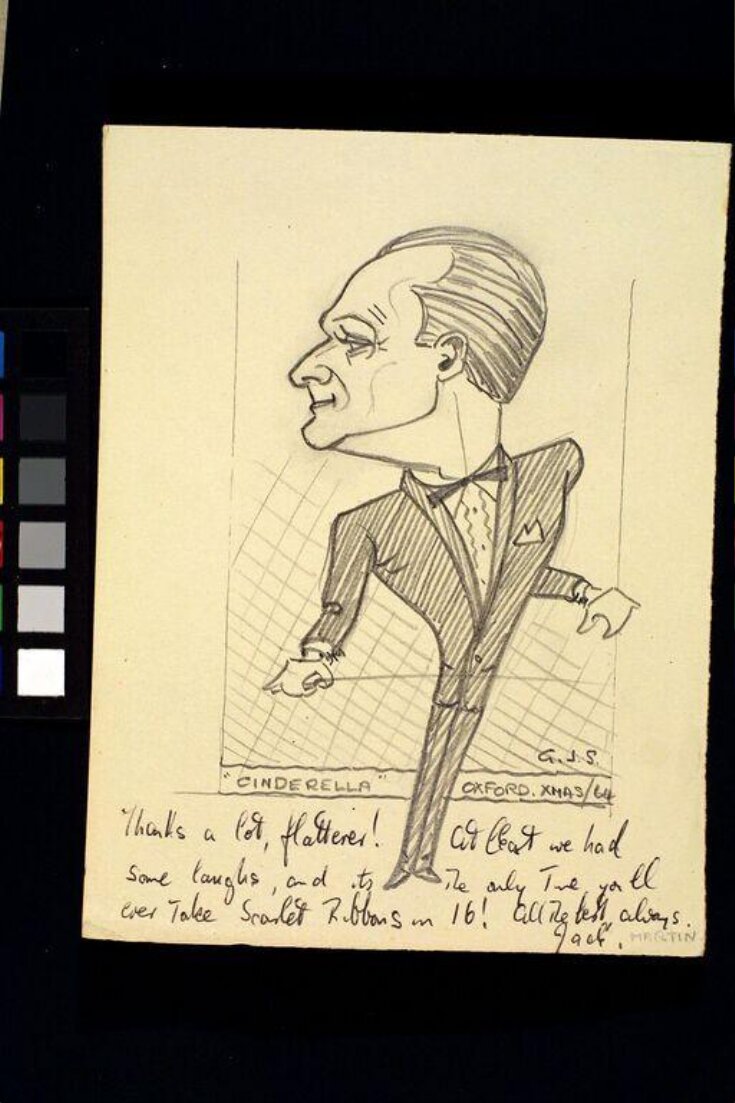 G.J.S.
"CINDERELLA" OXFORD. XMAS/64
Thanks a lot, flatterer! At least we had
some laughs, and its the only Time you'll
ever Take Scarlet Ribbons in 16! All The best, always.
Jack. MARTIN